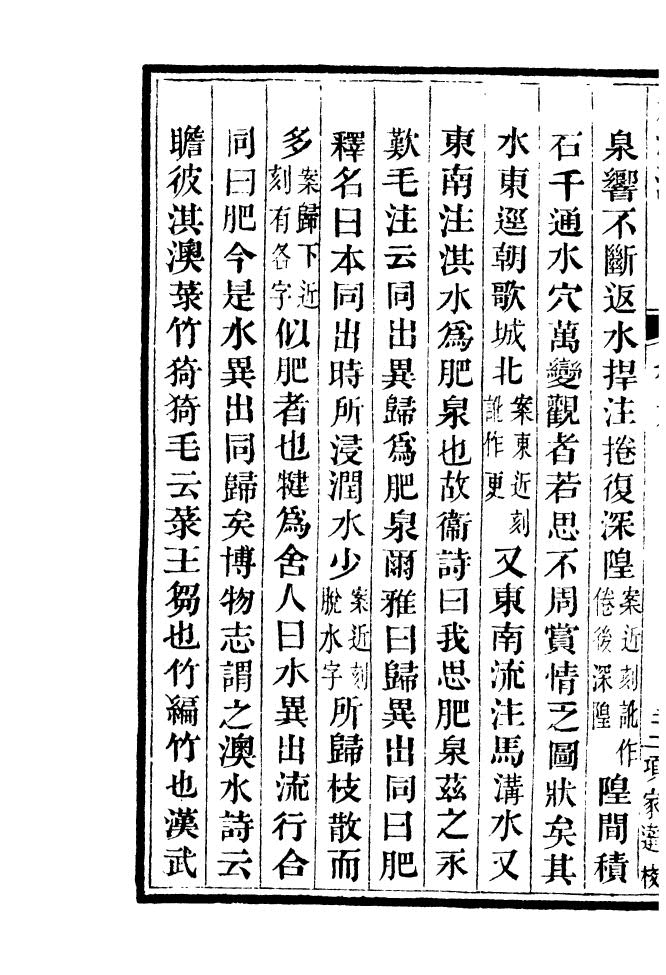 泉響不斷返水捍注捲復深隍案近刻訛作倦後深隍隍間積
石千通水穴萬變觀者若思不周賞情乏圖狀矣其
水東逕朝歌城北案東近刻訛作更又東南流注馬溝水又
東南注淇水爲肥泉也故衞詩曰我思肥泉茲之永
歎毛注云同出異歸爲肥泉爾雅曰歸異出同曰肥
釋名曰本同出時所浸潤水少案近刻脫水字所歸枝散而
多案歸下近刻有各字似肥者也犍爲舍人曰水異出流行合
同曰肥今是水異出同歸矣博物志謂之澳水詩云
瞻彼淇澳菉竹猗猗毛云菉王芻也竹編竹也漢武
項家達校